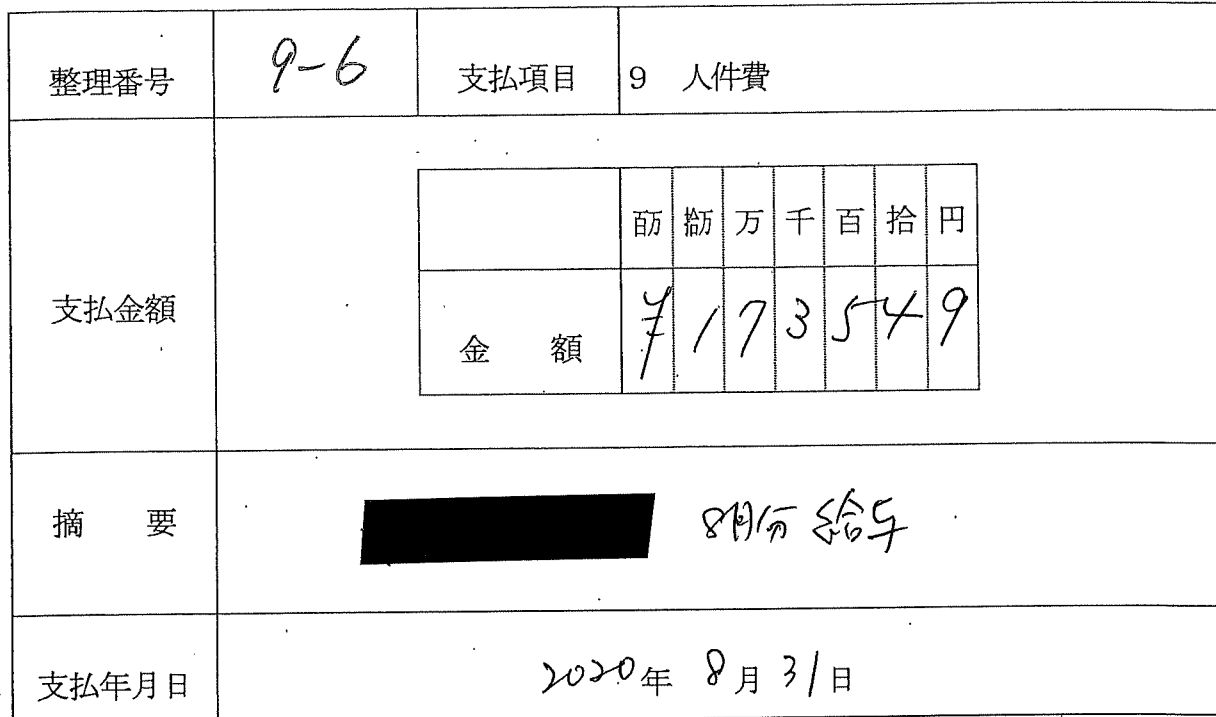 整理番号 9-6 支払項目 9 人件費
百万 拾万 万 千 百 拾 円
支払金額 金額 ¥ 1 7 3 5 4 9
摘要 8月分 給与
支払年月日 2020年 8月 31日